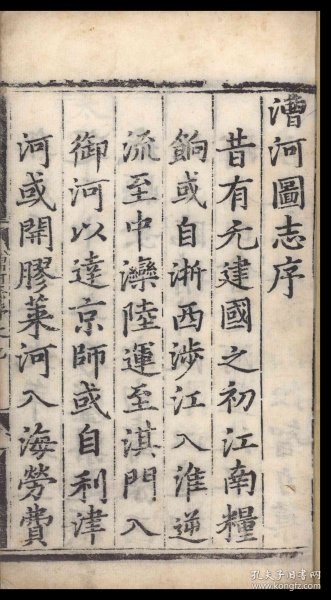 漕河圖志序
昔有元建國之初江南糧
餉或自浙西涉江入淮逆
流至中灤陸運至淇門入
御河以達京師或自利津
河或開膠萊河入海勞費
孔夫子旧书网